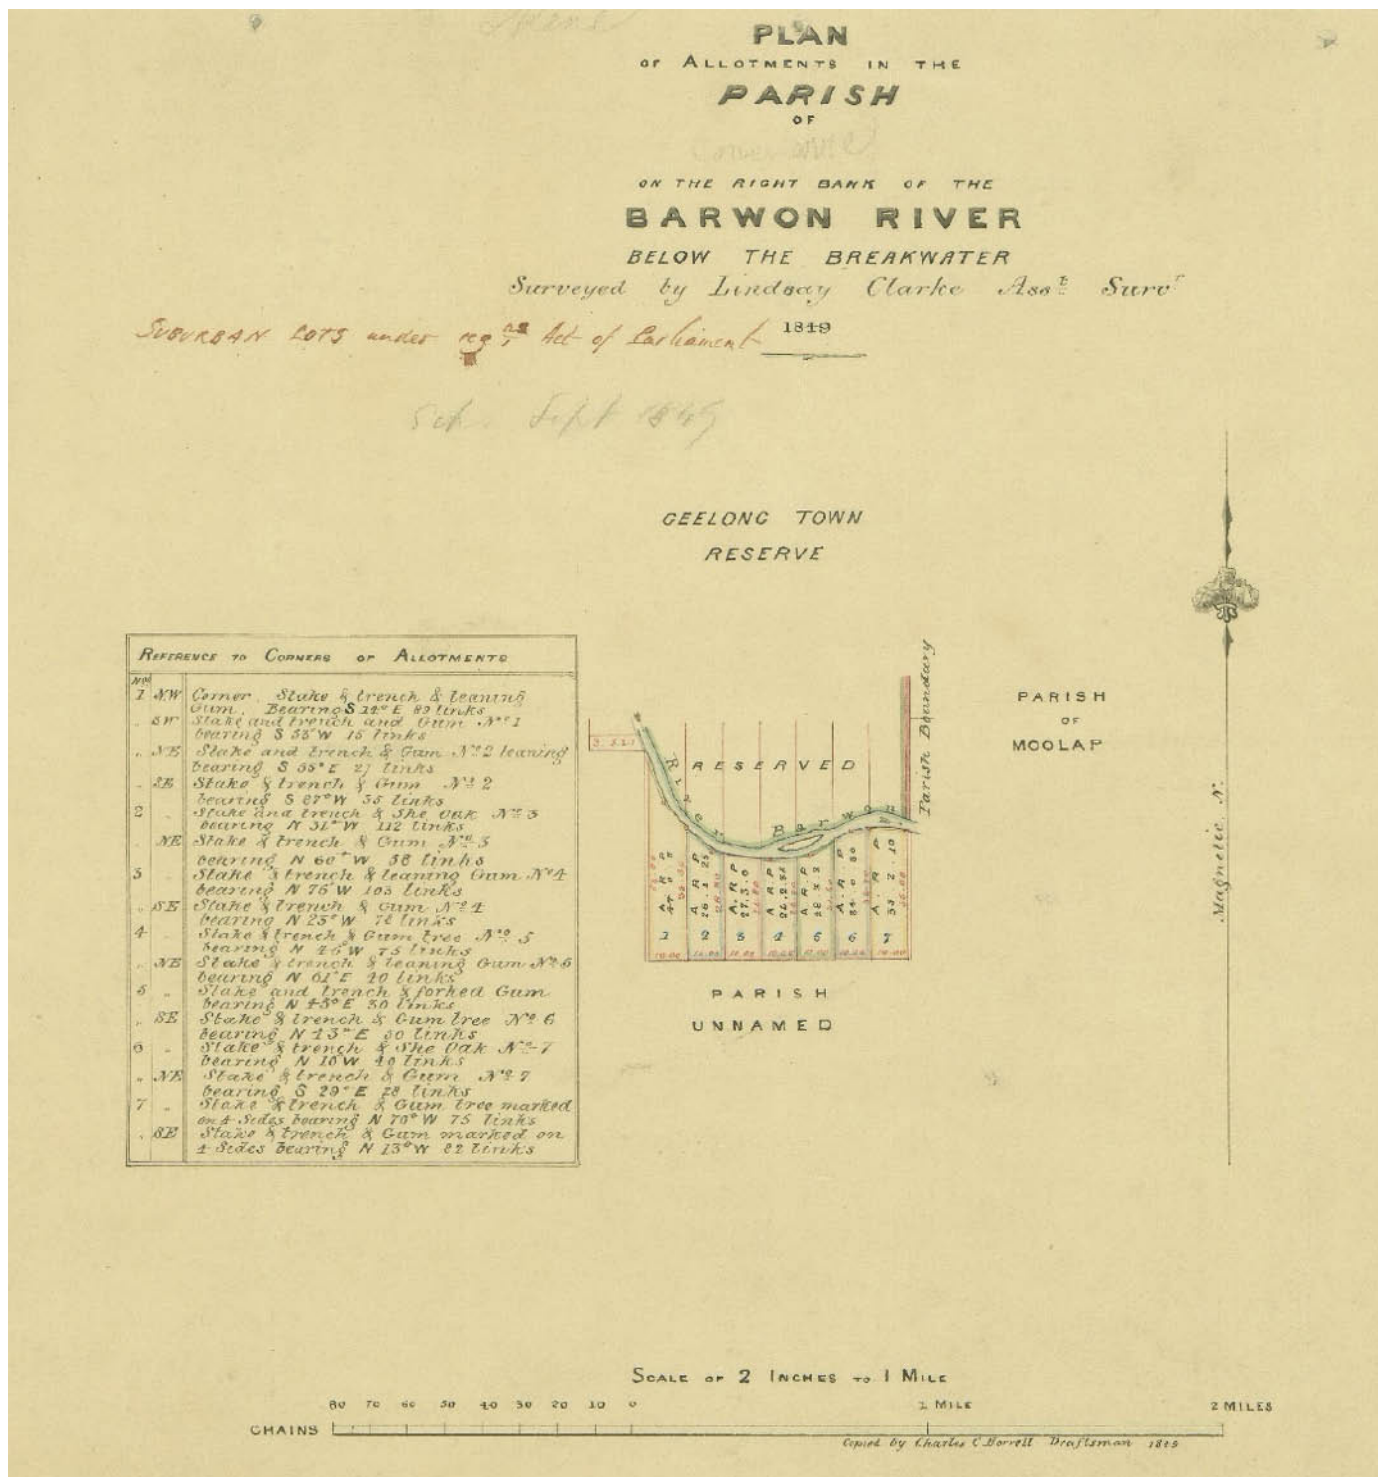 PLAN
OF ALLOTMENTS IN THE
PARISH
OF
ON THE RIGHT BANK OF THE
BARWON RIVER
BELOW THE BREAKWATER
Surveyed by Lindsay Clarke Asst Survr
1849
SUBURBAN LOTS under Act of Parliament
Sept 1849
GEELONG TOWN
RESERVE
REFERENCE TO CORNERS OF ALLOTMENTS
Nos
1 NW Corner. Stake & trench & leaning
Gum. Bearing S 14° E 89 links
" SW Stake and trench and Gum No 1
bearing S 53° W 15 links
" NE Stake and trench & Gum No 2 leaning
bearing S 55° E 27 links
" SE Stake & trench & Gum No 2
bearing S 87° W 35 links
2 " Stake and trench & She Oak No 3
bearing N 31° W 112 links
" NE Stake & trench & Gum No 3
bearing N 60° W 58 links
3 " Stake & trench & leaning Gum No 4
bearing N 76° W 103 links
" SE Stake & trench & Gum No 4
bearing N 25° W links
4 " Stake & trench & Gum tree No 5
bearing N 46° W 75 links
" NE Stake & trench & leaning Gum No 5
bearing N 61° E 40 links
5 " Stake and trench & forked Gum
bearing N 43° E 50 links
" SE Stake & trench & Gum tree No 6
bearing N 43° E 50 links
6 " Stake & trench & She Oak No 7
bearing N 10° W 40 links
" NE Stake & trench & Gum No 7
bearing S 29° E 28 links
7 " Stake & trench & Gum tree marked
on 4 Sides bearing N 70° W 75 links
" SE Stake & trench & Gum marked on
4 Sides bearing N 13° W 82 links
RESERVED
River Barwon
Parish Boundary
PARISH
OF
MOOLAP
Magnetic N.
A R P
A R P
A. R. P
27.3.0
A R P
A R P
A R P
34 0 30
A R P
33. 2. 10
1 2 3 4 5 6 7
PARISH
UNNAMED
SCALE OF 2 INCHES TO 1 MILE
80 70 60 50 40 30 20 10 0 1 MILE 2 MILES
CHAINS
Copied by Charles C Draftsman 1849